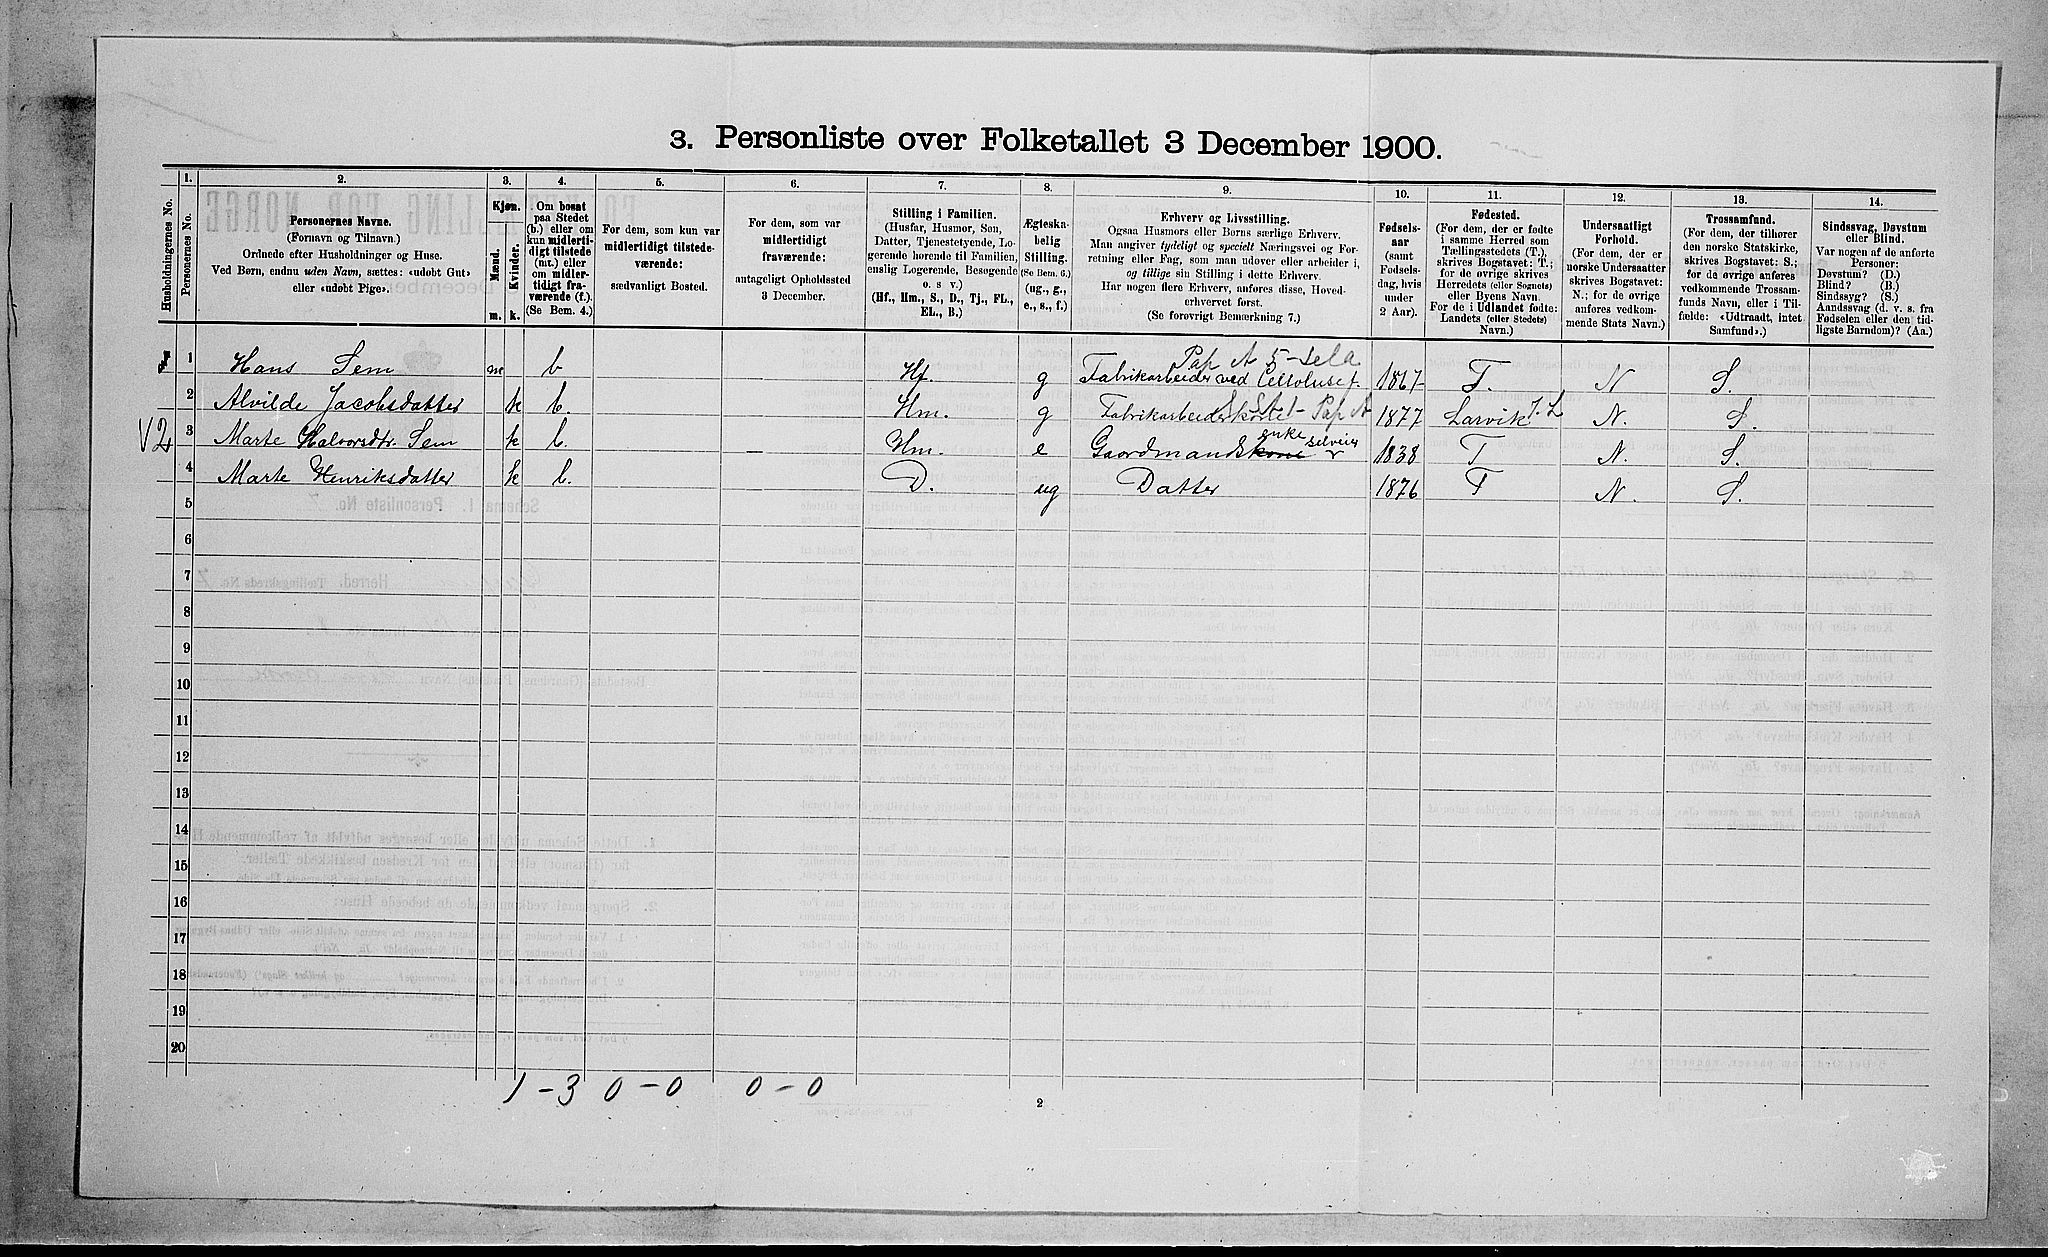 3. Personliste over Folketallet 3 December 1900.
1. 2. 3. 4. 5. 6. 7. 8. 9. 10. 11. 12. 13. 14.
Husholdningernes No.
Personernes No.
Personernes Navne.
(Fornavn og Tilnavn.)
Ordnede efter Husholdninger og Huse.
Ved Børn, endnu uden Navn, sættes: «udøbt Gut»
eller «udøbt Pige».
Kjøn.
Mænd.
Kvinder.
m. k.
Om bosat
paa Stedet
(b.) eller om
kun midlerti-
digt tilstede
(mt.) eller
om midler-
tidigt fra-
værende (f.).
(Se Bem. 4.)
For dem, som kun var
midlertidigt tilstede-
værende:
sædvanligt Bosted.
For dem, som var
midlertidigt
fraværende:
antageligt Opholdssted
3 December.
Stilling i Familien.
(Husfar, Husmor, Søn,
Datter, Tjenestetyende, Lo-
gerende hørende til Familien,
enslig Logerende, Besøgende
o. s v.)
(Hf., Hm., S., D., Tj., FL.,
EL., B.)
Ægteska-
belig
Stilling.
(Se Bem. 6.)
(ug., g.,
e., s., f.)
Erhverv og Livsstilling.
Ogsaa Husmors eller Børns særlige Erhverv.
Man angiver tydeligt og specielt Næringsvei og For-
retning eller Fag, som man udøver eller arbeider i,
og tillige sin Stilling i dette Erhverv.
Har nogen flere Erhverv, anføres disse, Hoved-
erhvervet først.
(Se forøvrigt Bemærkning 7.)
Fødsels-
aar
(samt
Fødsels-
dag, hvis
under
2 Aar).
Fødested.
(For dem, der er fødte
i samme Herred som
Tællingsstedets (T.),
skrives Bogstavet: T.;
for de øvrige skrives
Herredets (eller Sognets)
eller Byens Navn.
For de i Udlandet fødte:
Landets (eller Stedets)
Navn.)
Undersaatligt
Forhold.
(For dem, der er
norske Undersaatter
skrives Bogstavet:
N.; for de øvrige
anføres vedkom-
mende Stats Navn.)
Trossamfund.
(For dem, der tilhører
den norske Statskirke,
skrives Bogstavet: S.;
for de øvrige anføres
vedkommende Trossam-
funds Navn, eller i Til-
fælde: «Udtraadt, intet
Samfund».)
Sindssvag, Døvstum
eller Blind.
Var nogen af de anførte
Personer:
Døvstum? (D.)
Blind? (B.)
Sindssyg? (S.)
Aandssvag (d. v. s. fra
Fødselen eller den tid-
ligste Barndom)? (Aa.)
Pap A
1 Hans Sem m b Hf. g Fabrikarbeider ved Cellolusef. 1867 T. N S.
2 Alvilde Jacobsdatter k b. Hm. g Fabrikarbeiderkone Pap A 1877 Larvik N. S.
enke selveier
V2 3 Marte Halvorsdtr. Sem k b. Hm. e Gaardmandskone 1838 T N. S.
4 Marte Henriksdatter k b. D. ug Datter 1876 T N. S.
5
6
7
8
9
10
11
12
13
14
15
16
17
18
19
20
1 - 3 0 - 0 0 - 0
2